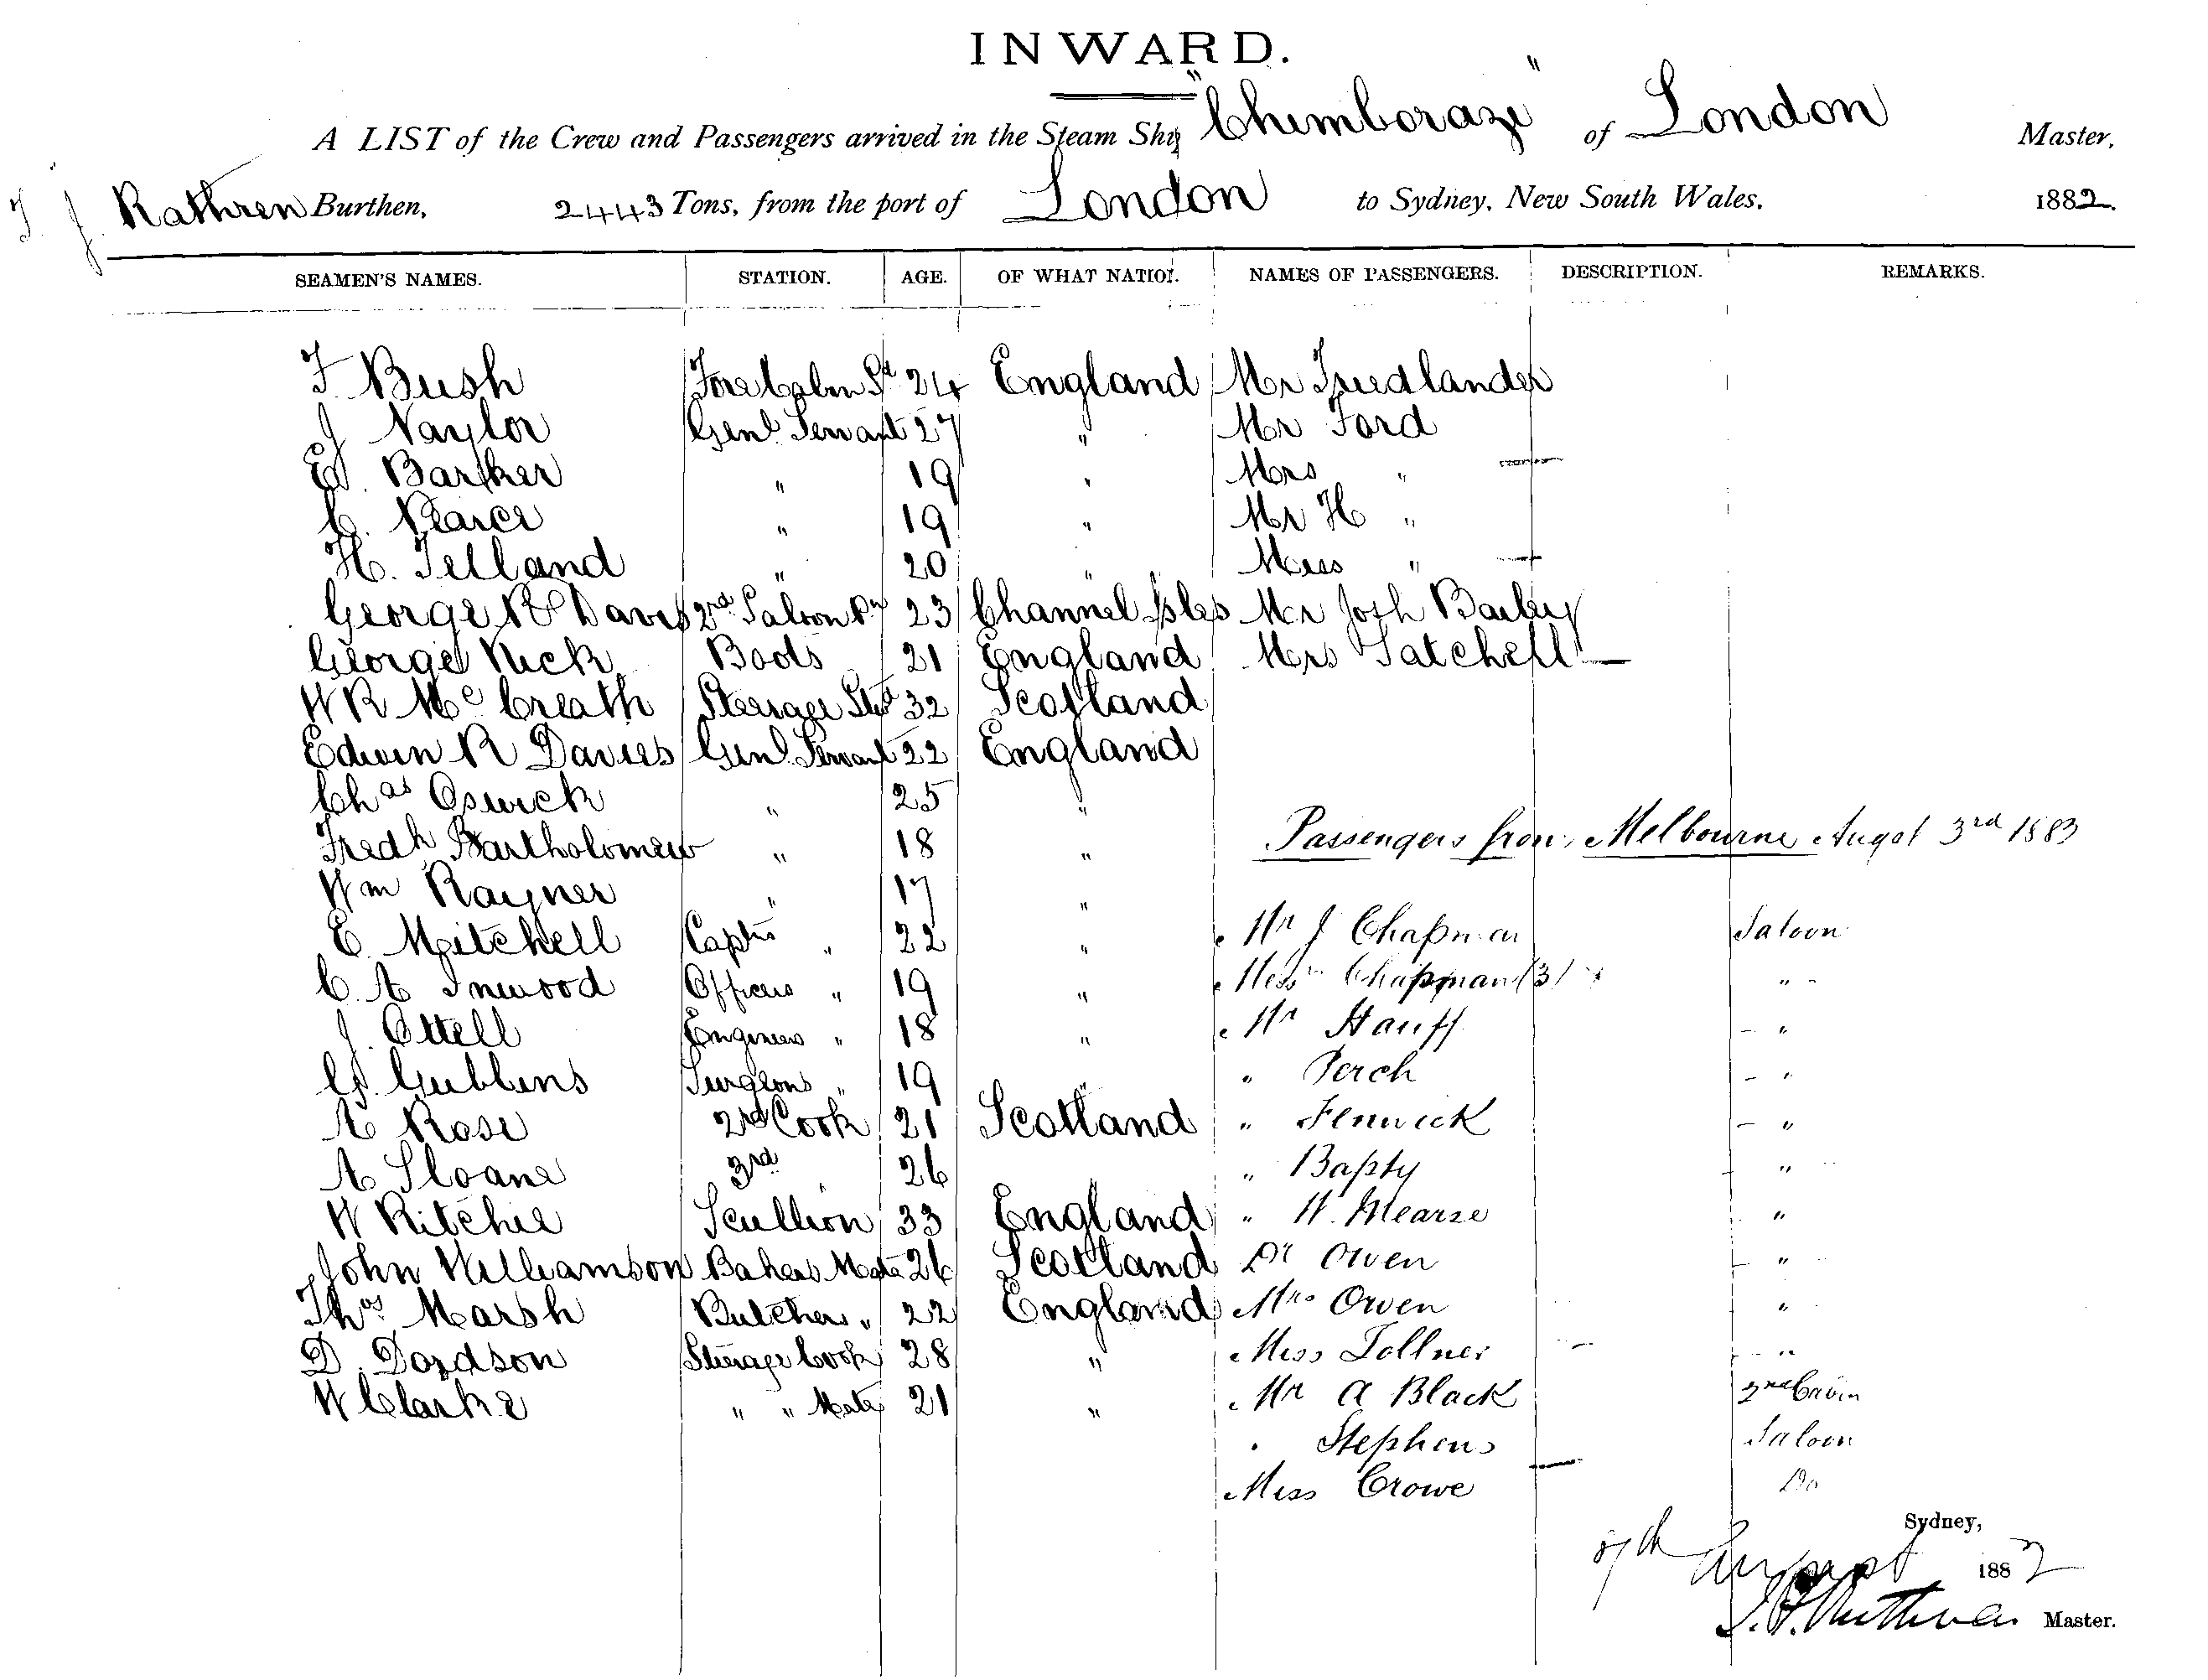 INWARD.
A LIST of the Crew and Passengers arrived in the Steam Ship "Chimborazo" of London Master,
Burthen, 2443 Tons, from the port of London to Sydney, New South Wales, 1882.
SEAMEN'S NAMES. STATION. AGE. OF WHAT NATION. NAMES OF PASSENGERS. DESCRIPTION. REMARKS.
F Bush 24 England Mr Friedlander
J Naylor Genl Servant 27 " Mr Ford
E. Barker " 19 " Mrs "
C. Pearce " 19 " Mr H "
H. Telland " 20 " Miss "
George Davis 2nd Saloon 23 Channel Isles Mr Josh Bailey
George Boots 21 England Mrs Satchell
W R McCreath Steerage Std 32 Scotland
Edwin R Davies Genl Servant 22 England
Chas Oswick " 25 "
Fredk Bartholomew " 18 "
Passengers from Melbourne August 3rd 1883
Wm Rayner " 17 "
E. Mitchell Capts " 22 " Mr J Chapman Saloon
C. A Inwood Officers " 19 " Chapman (3) "
J. Ottell Engineers " 18 " Mr Hauff "
G. Gubbins Surgeons " 19 " " Perch "
A Rose 2nd Cook 21 Scotland " Fenwick "
A Sloane 3rd " 26 " Bapty "
W Ritchie Scullion 33 England " W. Mearse "
John Williamson Bakers Mate 26 Scotland Dr Owen "
Thos Marsh Butchers " 22 England Mrs Owen "
D. Steerage Cook 28 " Miss Tollner "
W Clarke " " Mate 21 " Mr A Black 2nd Cabin
" Stephens Saloon
Miss Crowe Do
Sydney,
August 1882
Master.